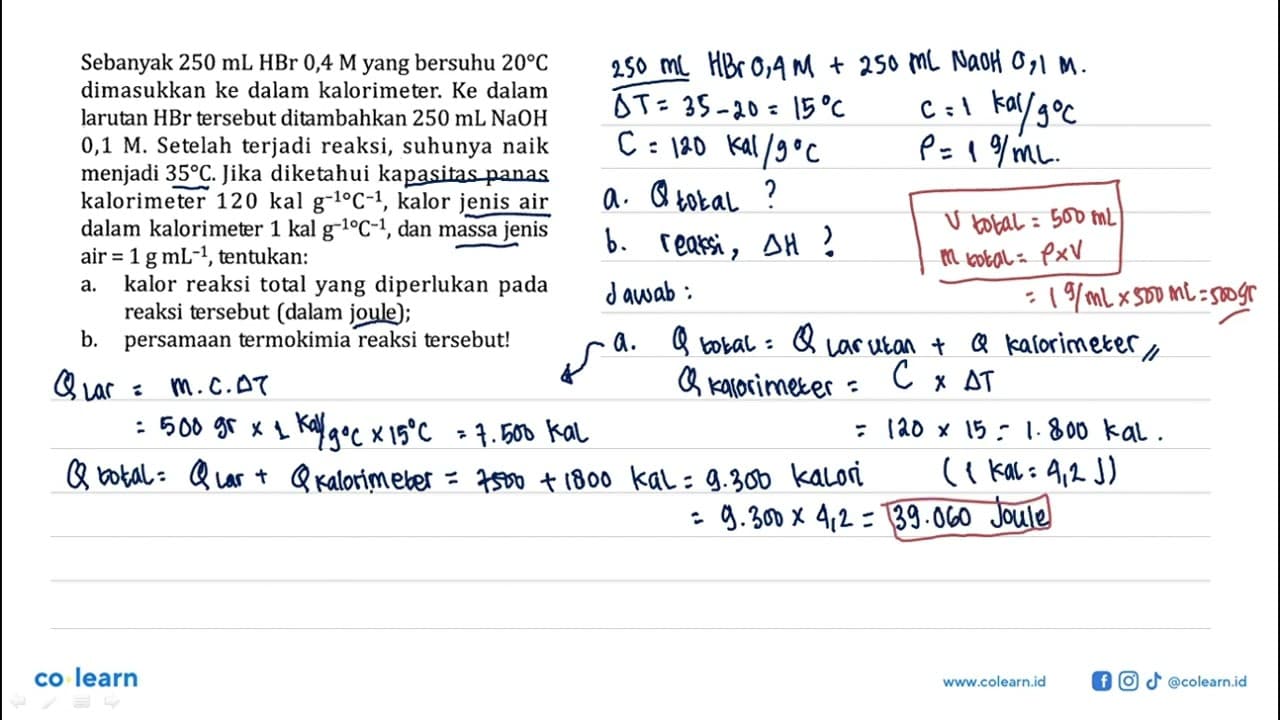 Sebanyak 250 mL HBr 0,4 M yang bersuhu 20°C
dimasukkan ke dalam kalorimeter. Ke dalam
larutan HBr tersebut ditambahkan 250 mL NaOH
0,1 M. Setelah terjadi reaksi, suhunya naik
menjadi 35°C. Jika diketahui kapasitas panas
kalorimeter 120 kal g⁻¹°C⁻¹, kalor jenis air
dalam kalorimeter 1 kal g⁻¹°C⁻¹, dan massa jenis
air = 1 g mL⁻¹, tentukan:
a. kalor reaksi total yang diperlukan pada
reaksi tersebut (dalam joule);
b. persamaan termokimia reaksi tersebut!
250 mL HBr 0,4 M + 250 mL NaOH 0,1 M.
ΔT = 35 - 20 = 15°C
c = 1 kal/g°C
C = 120 kal/g°C
ρ = 1 g/mL.
a. Q total ?
b. reaksi, ΔH ?
V total = 500 mL
m total = ρ x V
= 1 g/mL x 500 mL = 500 gr
Jawab :
a. Q total = Q Larutan + Q kalorimeter //
Q kalorimeter = C x ΔT
= 120 x 15 = 1.800 kal.
Q Lar = m.c.ΔT
= 500 gr x 1 kal/g°C x 15°C = 7.500 kal
Q total = Q Lar + Q kalorimeter = 7500 + 1800 kal = 9.300 kalori
(1 kal = 4,2 J)
= 9.300 x 4,2 = 39.060 Joule
co learn
www.colearn.id
@colearn.id